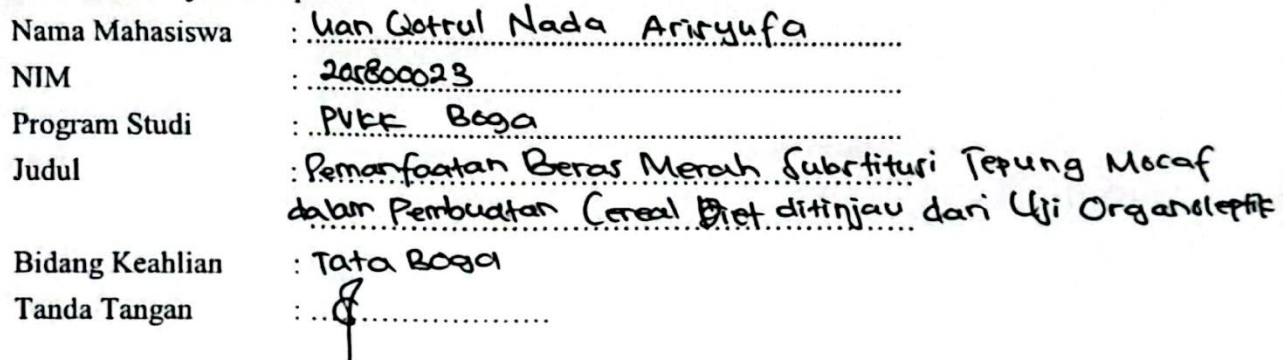 Nama Mahasiswa : Uan Qotrul Nada Arisyufa
NIM : 205800023
Program Studi : PVKK Boga
Judul : Pemanfaatan Beras Merah Substitusi Tepung Mocaf
dalam Pembuatan Cereal Diet ditinjau dari Uji Organoleptik
Bidang Keahlian : Tata Boga
Tanda Tangan :